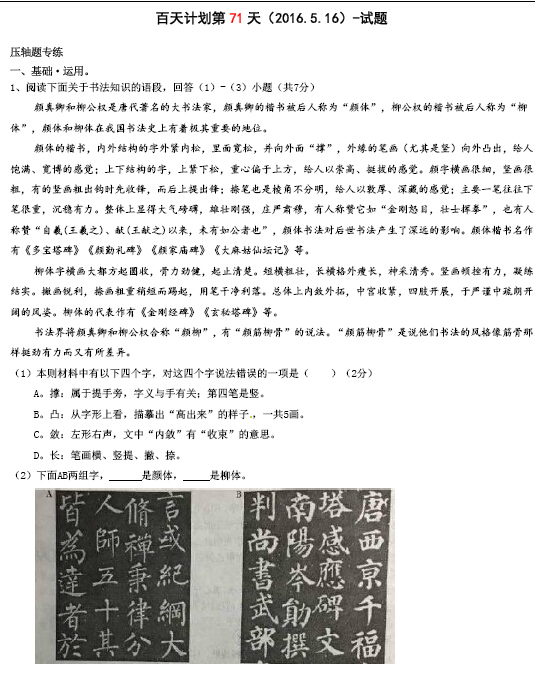 百天计划第71天（2016.5.16）-试题
压轴题专练
一、基础·运用。
1、阅读下面关于书法知识的语段，回答（1）-（3）小题（共7分）
颜真卿和柳公权是唐代著名的大书法家，颜真卿的楷书被后人称为“颜体”，柳公权的楷书被后人称为“柳
体”，颜体和柳体在我国书法史上有着极其重要的地位。
颜体的楷书，内外结构的字外紧内松，里面宽松，并向外面“撑”，外缘的笔画（尤其是竖）向外凸出，给人
饱满、宽博的感觉；上下结构的字，上紧下松，重心偏于上方，给人以崇高、挺拔的感觉。颜字横画很细，竖画很
粗，有的竖画粗出钩时先收锋，而后上提出锋；捺笔也是棱角不分明，给人以敦厚、深藏的感觉；主要一笔往往下
笔很重，沉稳有力。整体上显得大气磅礴，雄壮刚强，庄严肃穆，有人称赞它如“金刚怒目，壮士挥拳”，也有人
称赞“自羲(王羲之)、献(王献之)以来，未有如公者也”，颜体书法对后世书法产生了深远的影响。颜体楷书名作
有《多宝塔碑》《颜勤礼碑》《颜家庙碑》《大麻姑仙坛记》等。
柳体字横画大都方起圆收，骨力劲健，起止清楚。短横粗壮，长横格外瘦长，神采清秀。竖画顿挫有力，凝练
结实。撇画锐利，捺画粗重稍短而踢起，用笔干净利落。总体上内敛外拓，中宫收紧，四肢开展，于严谨中疏朗开
阔的风姿。柳体的代表作有《金刚经碑》《玄秘塔碑》等。
书法界将颜真卿和柳公权合称“颜柳”，有“颜筋柳骨”的说法。“颜筋柳骨”是说他们书法的风格像筋骨那
样挺劲有力而又有所差异。
（1）本则材料中有以下四个字，对这四个字说法错误的一项是（　　）（2分）
A。撑：属于提手旁，字义与手有关；第四笔是竖。
B。凸：从字形上看，描摹出“高出来”的样子，一共5画。
C。敛：左形右声，文中“内敛”有“收束”的意思。
D。长：笔画横、竖提、撇、捺。
（2）下面AB两组字，______是颜体，_____是柳体。
A
言或纪綱大
脩禪秉律分
人師五十其
皆為達者於
B
唐西京千福
塔感應碑文
南陽岑勛撰
判尚書武部